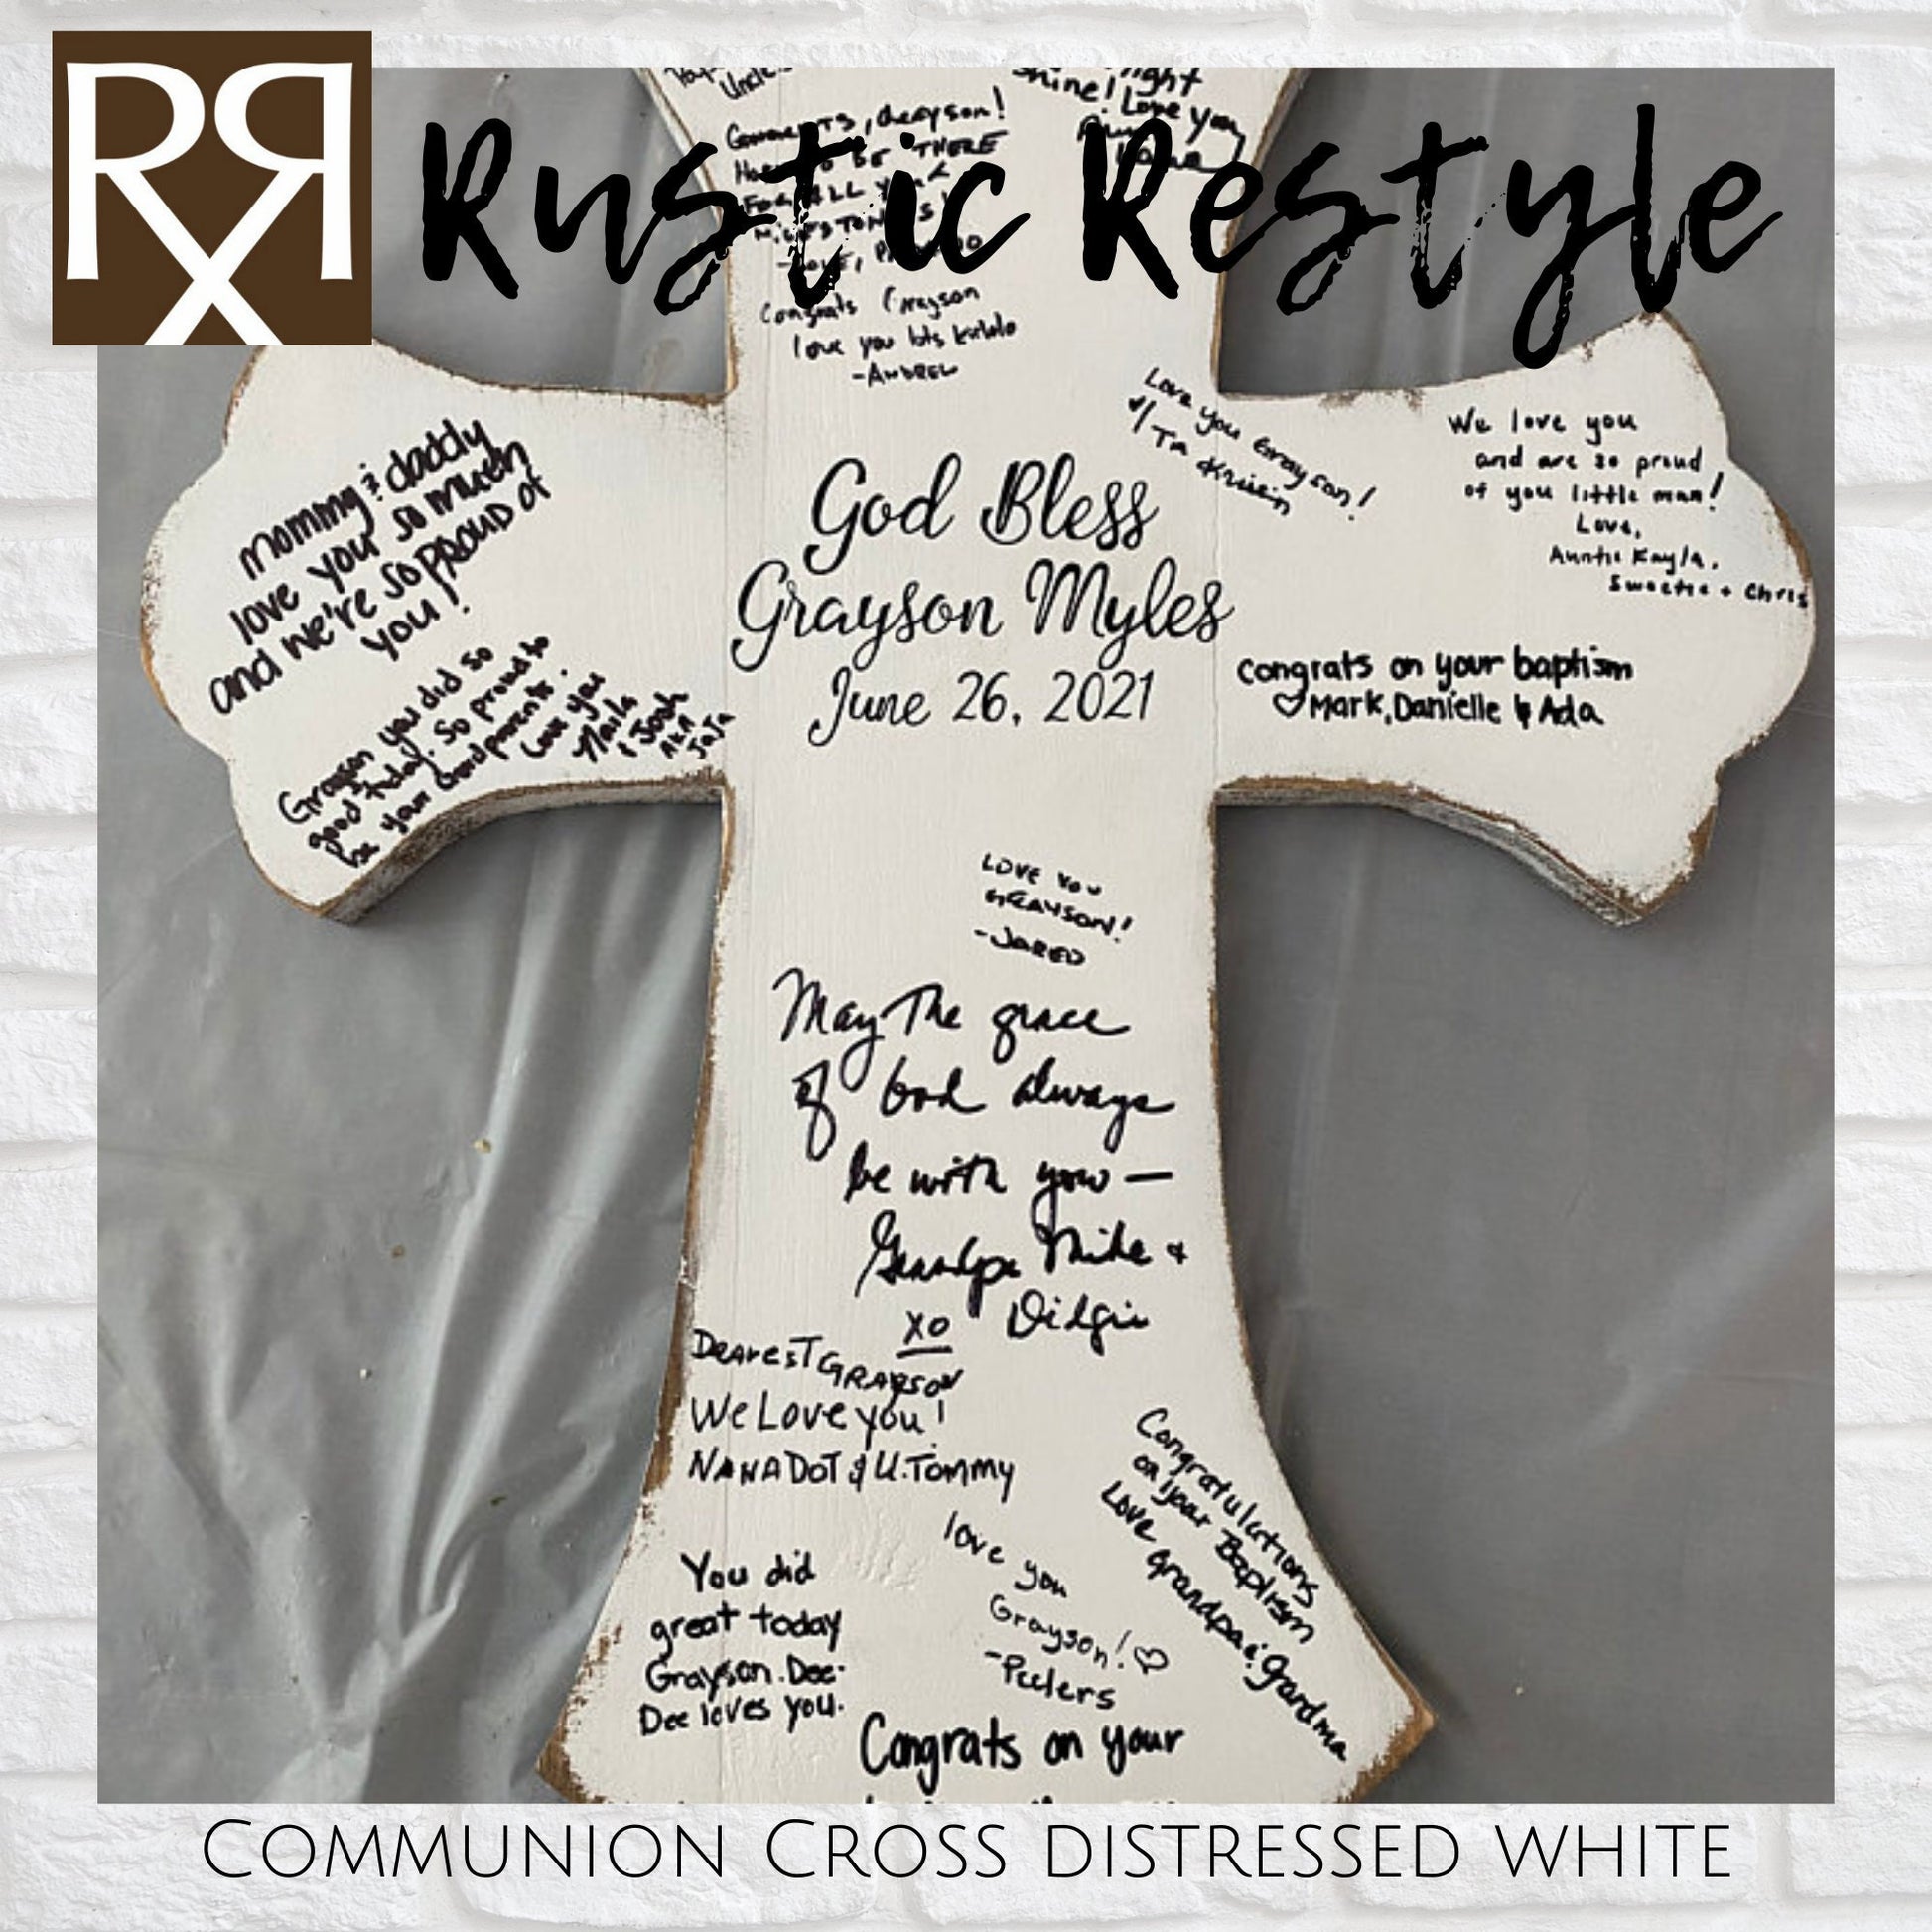 RRX
Rustic Restyle
Uncle
shine!
Love you
Grayson!
BE THERE
FOR ALL
Congrats Grayson
love you lots
-ANDREW
Mommy & daddy
love you so much
and we're so PROUD OF
you!
Grayson you did so
good today. So proud to
be your Godparents.
Love you
& Josh
AKA
JaJa
God Bless
Grayson Myles
June 26, 2021
Love you Grayson!
We love you
and are so proud
of you little man!
Love,
Auntie Kayla,
Sweetie + Chris
Congrats on your baptism
♡Mark, Danielle & Ada
LOVE YOU
GRAYSON!
-JARED
May The grace
of God always
be with you —
Grandpa Mike &
XO
DearesT GRAYSON
We Love you!
NANA DOT & U. Tommy
You did
great today
Grayson. Dee-
Dee loves you.
love you
Grayson! ♡
-Peelers
Congratulations
on your Baptism
Love grandpa & grandma
Congrats on your
COMMUNION CROSS DISTRESSED WHITE